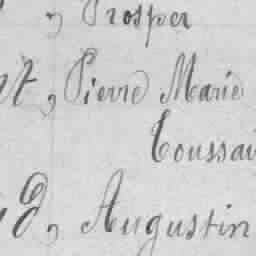 , Prosper
t, Pierre Marie
Toussai
d, Augustin